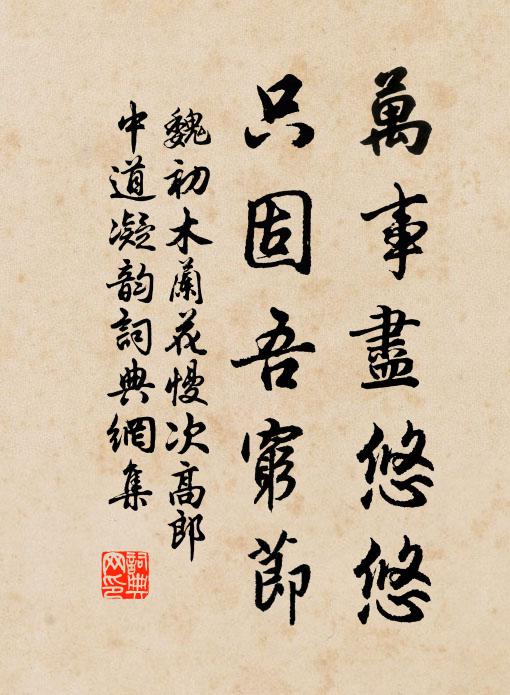 萬事盡悠悠
只固吾窮節
魏初木蘭花慢次高郎
中道凝韵詞典網集
詞典
网印